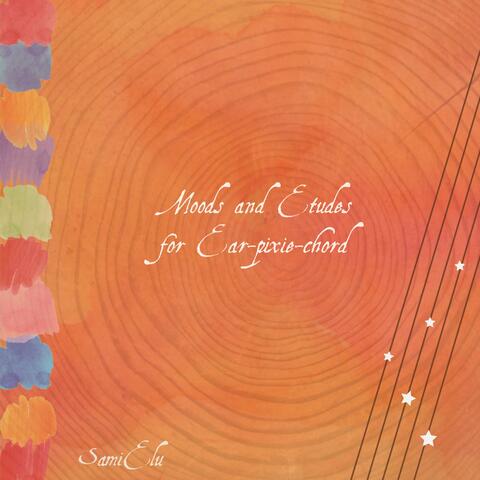 Moods and Etudes
for Ear-pixie-chord
SamiElu